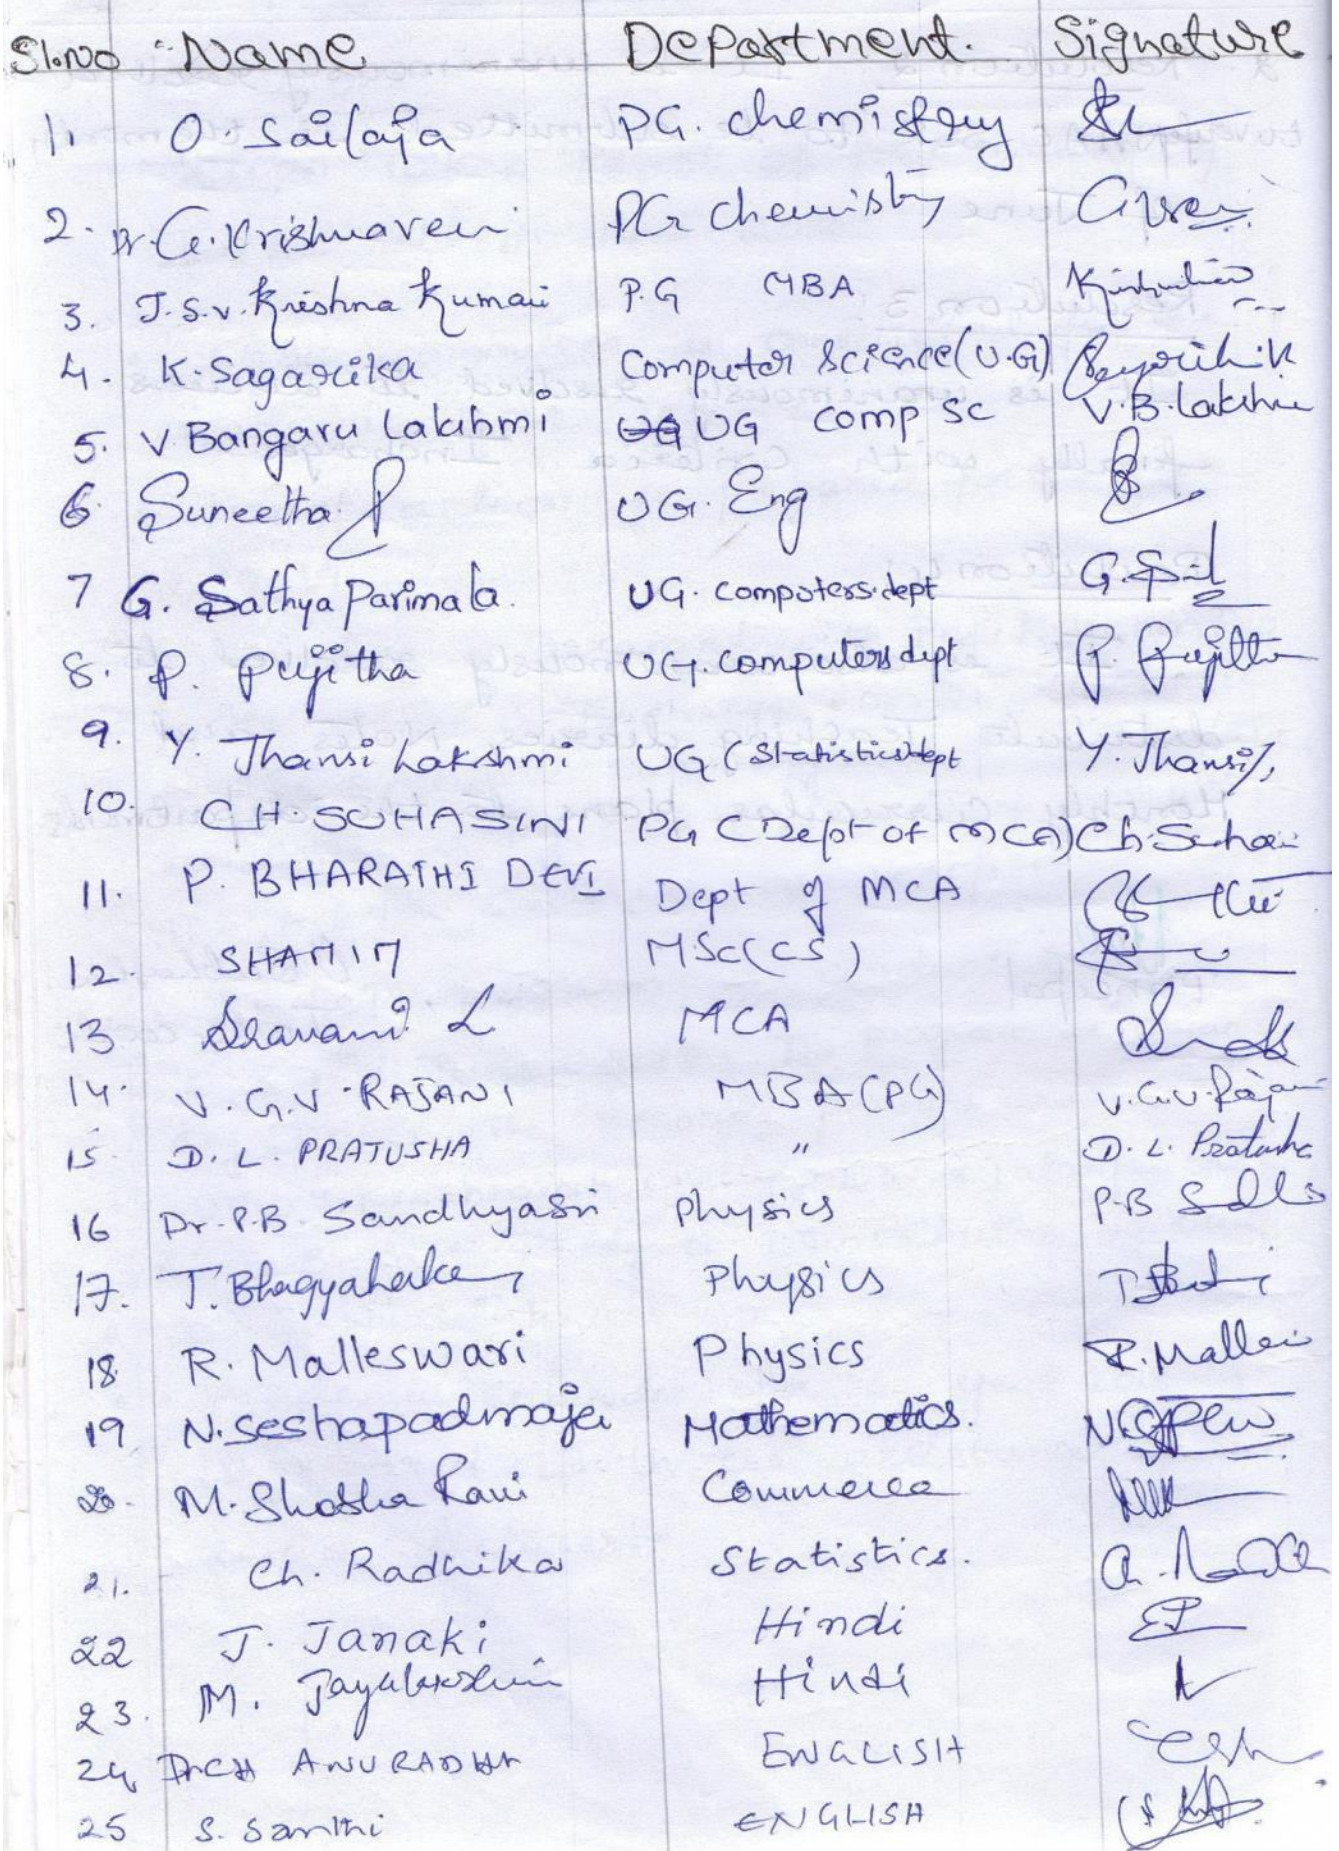 Sl.no Name Department. Signature
1. O. Sailaja PG. chemistry
2. Dr. G. Krishnaveni PG chemistry
3. J.S.V. Krishna Kumari P.G MBA
4. K. Sagarika Computer Science (U.G) Sagarika.K
5. V Bangaru Lakshmi UG UG comp sc V.B. Lakshmi
6. Suneetha P UG. Eng
7 G. Sathya Parimala. UG. computers.dept
8. P. Pujitha UG. computers dept P. Pujitha
9. Y. Jhansi Lakshmi UG (Statistics) dept Y. Jhansi
10. CH. SUHASINI PG (Dept of MCA) Ch. Suhasi
11. P. BHARATHI DEVI Dept of MCA
12. SHAMIM MSc(CS)
13 Sravani L MCA
14. V. G. V. RAJANI MBA (PG) V.G.V. Rajani
15 D. L. PRATUSHA " D. L. Pratusha
16 Dr. P.B. Sandhyasri Physics P.B
17. T. Physics
18. R. Malleswari Physics R. Malles
19 N. Seshapadmaja Mathematics.
20. M. Shobha Rani Commerce
21. Ch. Radhika Statistics.
22 J. Janaki Hindi
23. M. Jayalakshmi Hindi
24 Dr CH ANURADHA ENGLISH
25 S. Santhi ENGLISH